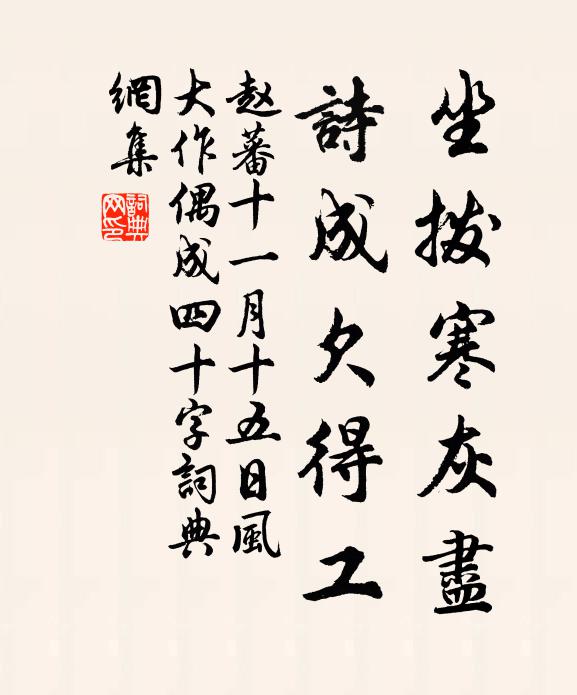 坐拨寒灰盡
詩成欠得工
赵蕃十一月十五日風
大作偶成四十字詞典
網集
詞典
网印